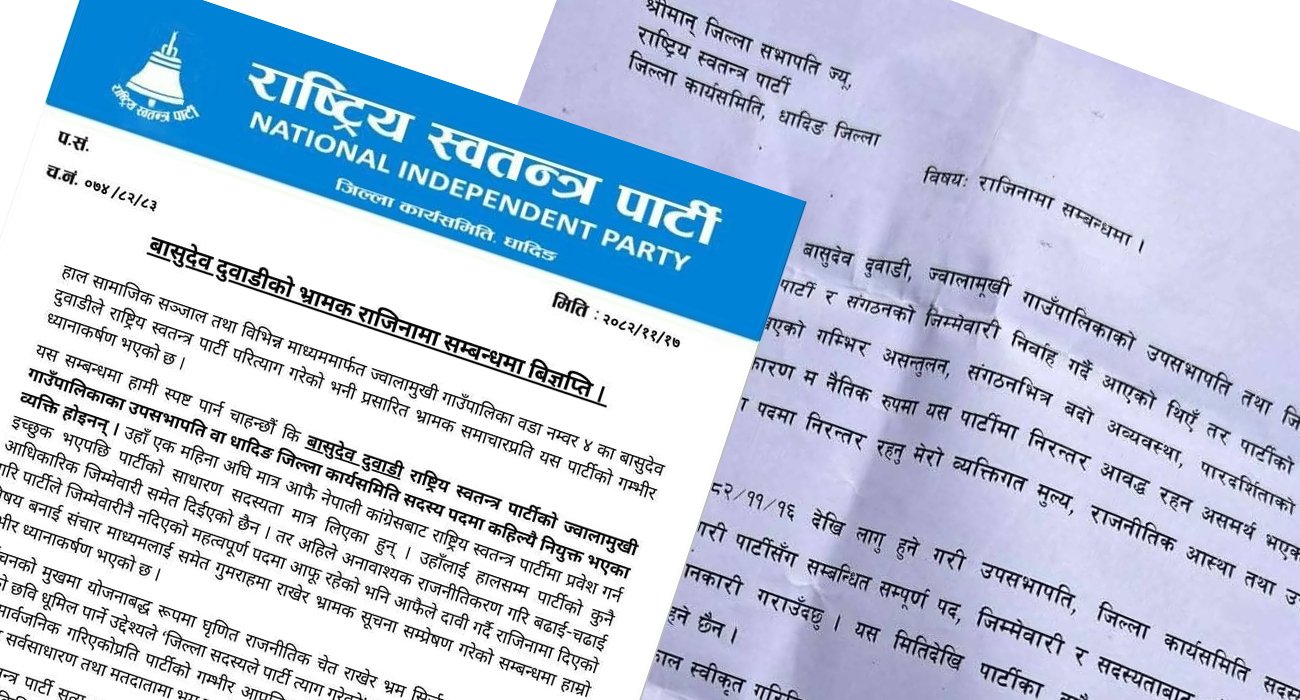 राष्ट्रिय स्वतन्त्र पार्टी
राष्ट्रिय स्वतन्त्र पार्टी
NATIONAL INDEPENDENT PARTY
जिल्ला कार्यसमिति, धादिङ
प.सं.
च.नं. ०७४/८२/८३
मिति : २०८२/११/१७
बासुदेव दुवाडीको भ्रामक राजिनामा सम्बन्धमा बिज्ञप्ति ।
हाल सामाजिक सञ्जाल तथा विभिन्न माध्यममार्फत ज्वालामुखी गाउँपालिका वडा नम्वर ४ का बासुदेव
दुवाडीले राष्ट्रिय स्वतन्त्र पार्टी परित्याग गरेको भनी प्रसारित भ्रामक समाचारप्रति यस पार्टीको गम्भीर
ध्यानाकर्षण भएको छ ।
यस सम्बन्धमा हामी स्पष्ट पार्न चाहन्छौं कि बासुदेव दुवाडी राष्ट्रिय स्वतन्त्र पार्टीको ज्वालामुखी
गाउँपालिकाका उपसभापति वा धादिङ जिल्ला कार्यसमिति सदस्य पदमा कहिल्यै नियुक्त भएका
व्यक्ति होइनन् । उहाँ एक महिना अघि मात्र आफै नेपाली कांग्रेसबाट राष्ट्रिय स्वतन्त्र पार्टीमा प्रवेश गर्न
इच्छुक भएपछि पार्टीको साधारण सदस्यता मात्र लिएका हुन् । उहाँलाई हालसम्म पार्टीको कुनै
आधिकारिक जिम्मेवारी समेत दिईएको छैन । तर अहिले अनावाश्यक राजनीतिकरण गरि बढाई-चढाई
गरि पार्टीले जिम्मेवारीनै नदिएको महत्वपूर्ण पदमा आफू रहेको भनि आफैले दावी गर्दै राजिनामा दिएको
विषय बनाई संचार माध्यमलाई समेत गुमराहमा राखेर भ्रामक सूचना सम्प्रेषण गरेको सम्बन्धमा हाम्रो
ध्यानाकर्षण भएको छ ।
मुखमा योजनाबद्ध रूपमा घृणित राजनीतिक चेत राखेर भ्रम
छवि धूमिल पार्ने उद्देश्यले 'जिल्ला सदस्यले पार्टी त्याग गरेको
सार्वजनिक गरिएकोप्रति पार्टीको गम्भीर
सर्वसाधारण तथा मतदातामा भ्रम
पार्टी
श्रीमान् जिल्ला सभापति ज्यू,
राष्ट्रिय स्वतन्त्र पार्टी
जिल्ला कार्यसमिति, धादिङ जिल्ला
विषयः राजिनामा सम्बन्धमा ।
बासुदेव दुवाडी, ज्वालामूखी गाउँपालिकाको उपसभापति तथा
पार्टी र संगठनको जिम्मेवारी निर्वाह गर्दै आएको थिएँ तर पार्टीको
गम्भिर असन्तुलन, संगठनभित्र बढो अव्यवस्था, पारदर्शिताको
कारण म नैतिक रुपमा यस पार्टीमा निरन्तर आवद्ध रहन असमर्थ
पदमा निरन्तर रहनु मेरो व्यक्तिगत मुल्य, राजनीतिक आस्था तथा
८२/११/१६ देखि लागु हुने गरी उपसभापति, जिल्ला कार्यसमिति
पार्टीसँग सम्बन्धित सम्पूर्ण पद, जिम्मेवारी र
गराउँदछु । यस मितिदेखि पार्टीका
छैन ।
स्वीकृत